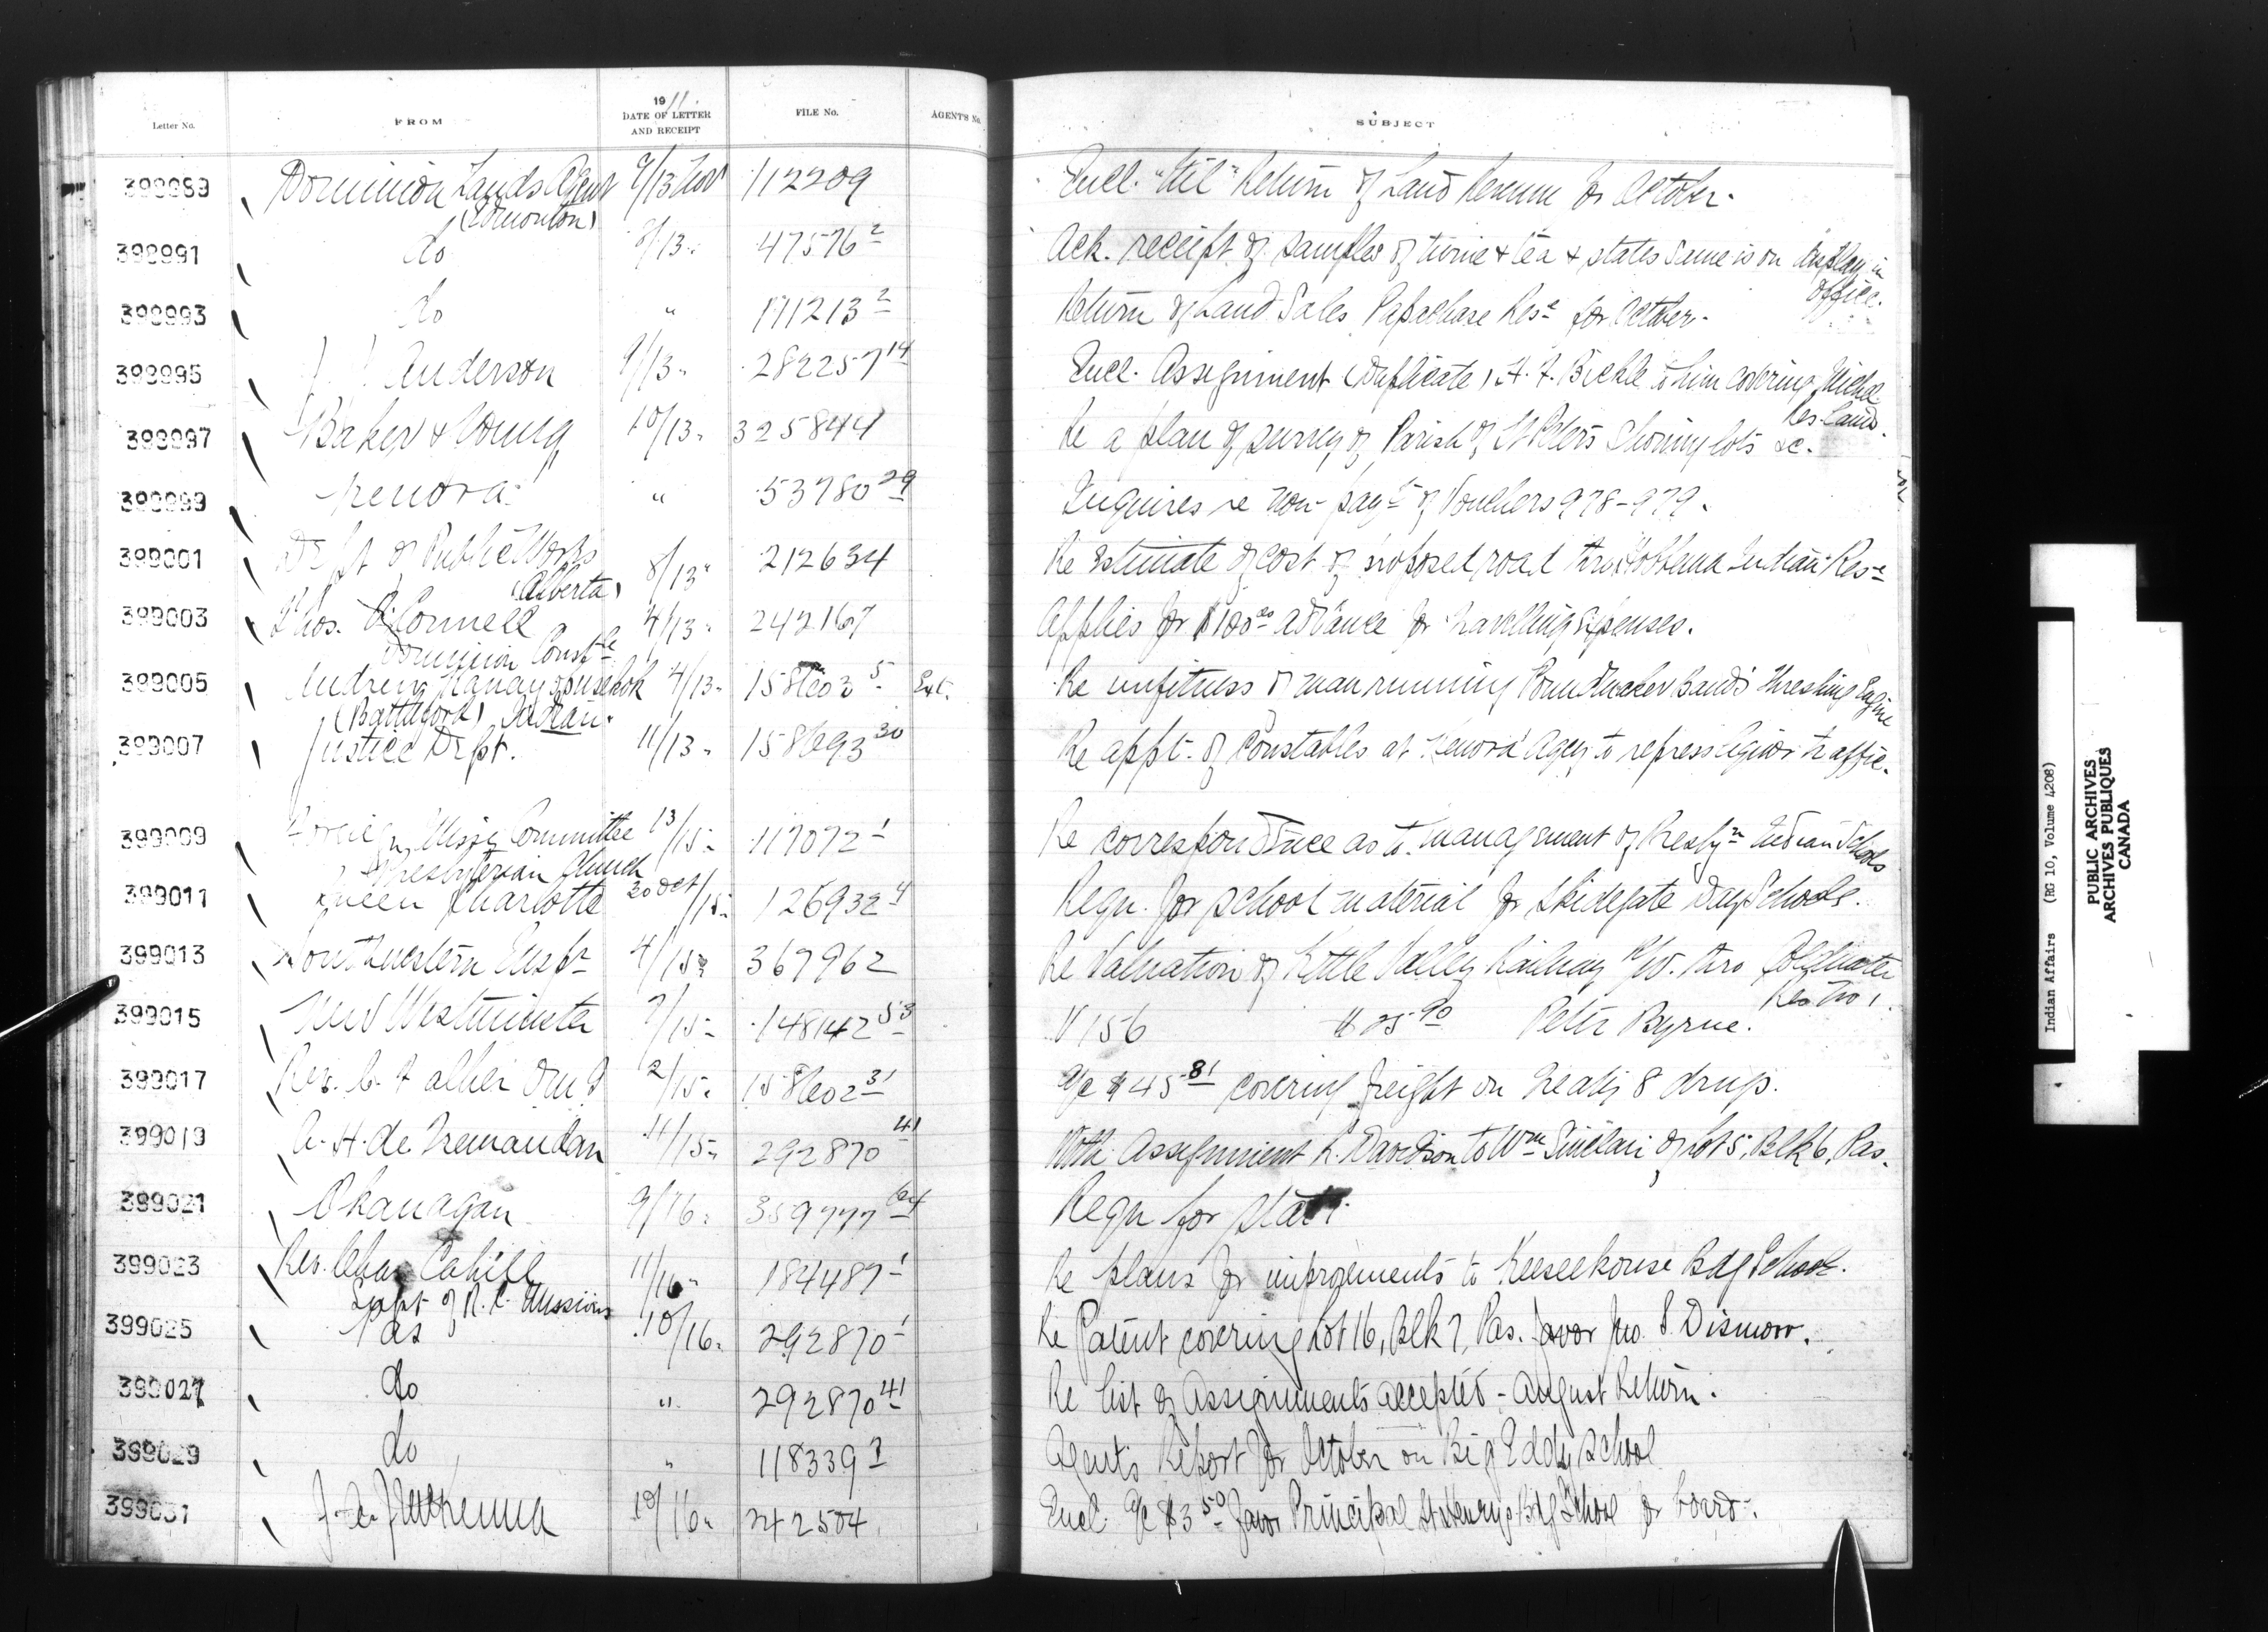 Letter No. FROM 1911 DATE OF LETTER AND RECEIPT FILE No. AGENT'S No. SUBJECT
398989 Dominion Lands Agent 9/13 Nov 112209 Encl. "Nil" Return of Land Revenue for October.
(Edmonton)
398991 do 8/13 47576 2 Ack. receipt of samples of twine & tea & states same is on display in
office.
398993 do " 171213 2 Return of Land Sales Papachase Rese for October.
398995 J. J. Anderson 9/13 282257 14 Encl. Assignment (Duplicate) A. F. Bickle to him covering Michel
Res. Land.
398997 Baker & Young 10/13 325844 Re a plan of survey of Parish of St Peters showing lots &c.
398999 Kenora " 53780 29 Inquires re non-payt of Vouchers 978-979.
399001 Dept of Public Works 8/13 212634 Re Estimate of cost of proposed road thro Hobbema Indian Rese
(Alberta)
399003 Thos. O'Connell 4/13 242167 Applies for $100.00 advance for travelling expenses.
Dominion Constle
399005 Andrew 4/13 158603 5 Ext. Re unfitness of man running Poundmaker Band's Threshing Engine
(Battleford) Indian.
399007 Justice Dept. 11/13 158693 30 Re appt. of Constables at Kenora Agcy to repress liquor traffic.
399009 Foreign Missy Committee 13/15 117072 1 Re correspondence as to management of Presbyn Indian Schools
Presbyterian Church
399011 Queen Charlotte 30 Oct/15 126932 4 Reqn. for school material for Skidegate Day School.
399013 Southwestern Inspr 4/15 367962 Re Valuation of Kettle Valley Railway R/W. thro Coldwater
Res No 1.
399015 New Westminster 7/15 148142 53 V 156 $25.90 Peter Byrne.
399017 Rev. 2/15 158602 31 a/c $45.81 covering freight on Treaty 8 drugs.
399019 A. H. de Tremaudan 11/15 292870 41 With Assignment R. Davidson to Wm Sinclair of Lot 5, Blk 6, Pas.
399021 Okanagan 9/16 359777 64 Reqn for staty.
399023 Rev. Chas Cahill 11/16 184487 1 Re plans for improvements to Keeseekouse Bdg School.
Supt of R.C. Missions
399025 Pas 10/16 292870 1 Re Patent covering Lot 16, Blk 7, Pas. favor Jno. S. Dismorr.
399027 do " 292870 41 Re list of Assignments accepted - August Return.
399029 do " 118339 1 Agent's Report for October on Big Eddy School
399031 J. A. J. McKenna 10/16 242504 Encl. a/c $3.50 favor Principal St Henry's Bdg School for board.
Indian Affairs (RG 10, Volume 4208)
PUBLIC ARCHIVES
ARCHIVES PUBLIQUES
CANADA